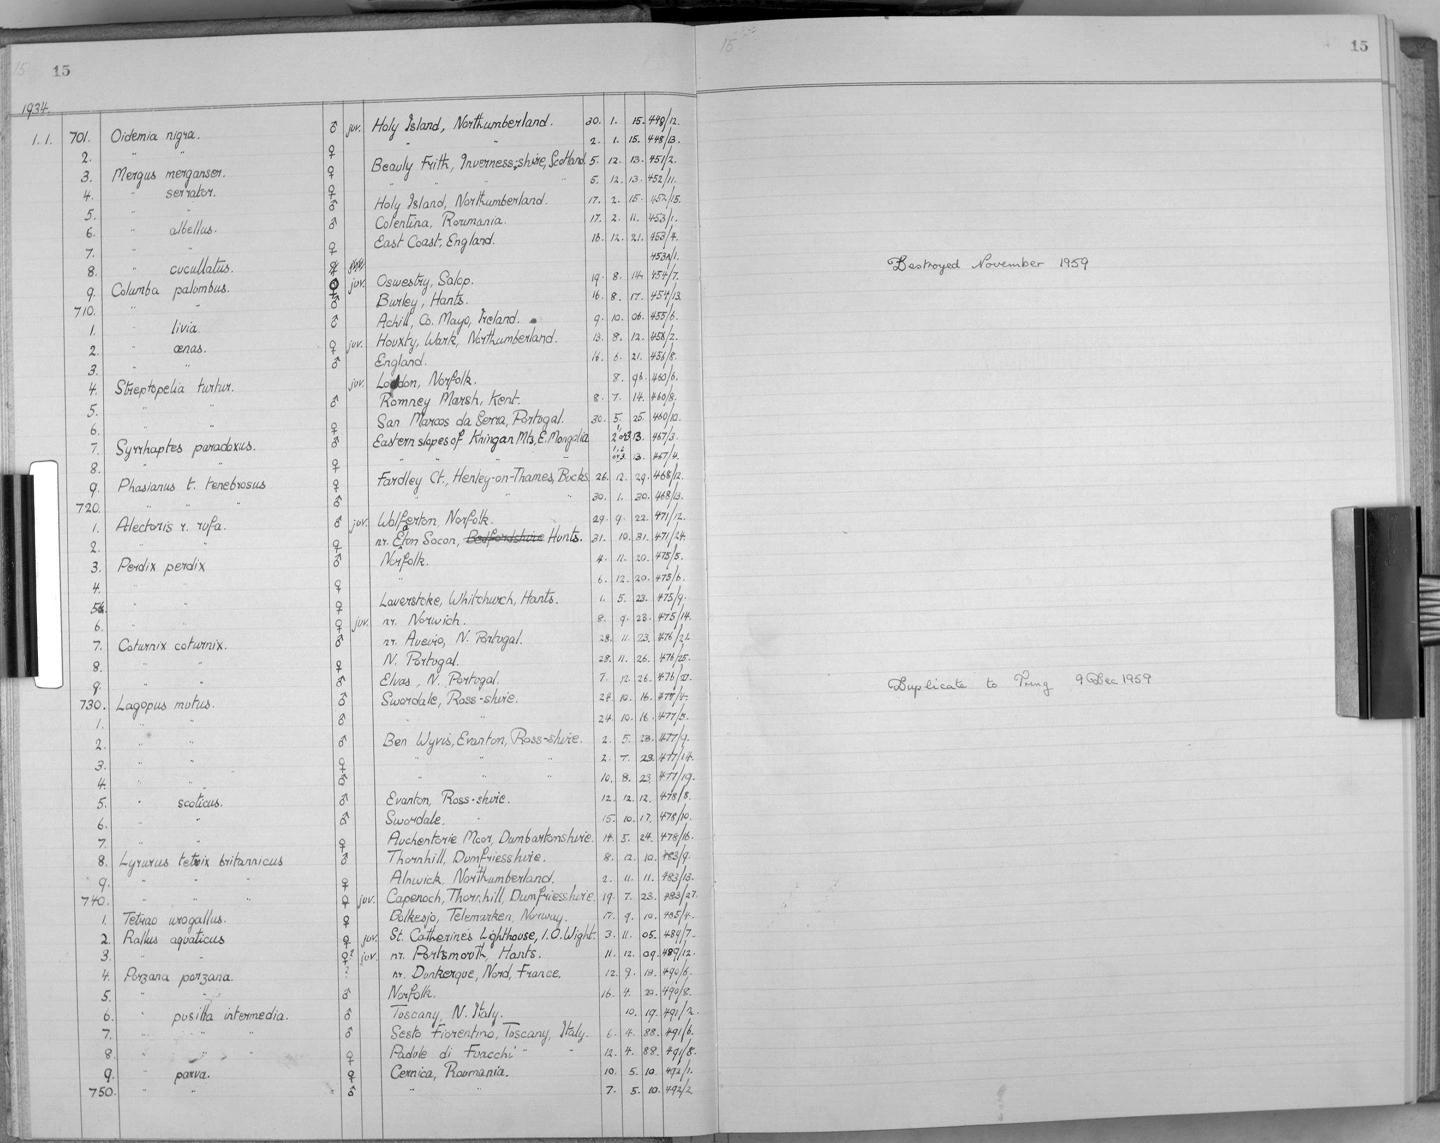 15 15
1934.
1.1. 701. Oidemia nigra. ♂ juv. Holy Island, Northumberland. 30. 1. 15. 448/12.
2. " " ♀ " " 2. 1. 15. 448/13.
3. Mergus merganser. ♀ Beauly Frith, Inverness-shire, Scotland 5. 12. 13. 451/2.
4. " serrator. ♀ " " " " 5. 12. 13. 452/11.
5. " " ♂ Holy Island, Northumberland. 17. 2. 15. 452/15.
6. " albellus. ♂ Colentina, Roumania. 17. 2. 11. 453/1.
7. " " ♀ East Coast, England. 18. 12. 21. 453/4.
8. " cucullatus. 453A/1. Destroyed November 1959
9. Columba palumbus. ♀ juv. Oswestry, Salop. 19. 8. 14. 454/7.
710. " " ♂ Burley, Hants. 16. 8. 17. 454/13.
1. " livia. ♂ Achill, Co. Mayo, Ireland. 9. 10. 06. 455/6.
2. " œnas. ♀ juv. Houxty, Wark, Northumberland. 13. 8. 12. 456/2.
3. " " ♂ England. 16. 6. 21. 456/8.
4. Streptopelia turtur. juv. Loddon, Norfolk. 8. 96. 460/6.
5. " " ♂ Romney Marsh, Kent. 8. 7. 14. 460/8.
6. " " ♀ San Marcos da Serra, Portugal. 30. 5. 25. 460/10.
7. Syrrhaptes paradoxus. ♂ Eastern slopes of Khingan Mts, E. Mongolia 1, 2 or 3 13. 467/3.
8. " " ♀ " " " " 1, 2 or 3. 13. 467/4.
9. Phasianus t. tenebrosus ♀ Fardley Ct., Henley-on-Thames, Bucks. 26. 12. 29. 468/12.
720. " " " ♂ " " 30. 1. 30. 468/13.
1. Alectoris r. rufa. ♂ juv. Wolferton, Norfolk. 29. 9. 22. 471/12.
2. " " ♀ nr. Eaton Socon, Bedfordshire Hunts. 31. 10. 31. 471/24.
3. Perdix perdix ♂ Norfolk. 4. 11. 20. 475/5.
4. " " ♀ " 6. 12. 20. 475/6.
5. " " ♀ Laverstoke, Whitchurch, Hants. 1. 5. 23. 475/9.
6. " " ♀ juv. nr. Norwich. 8. 9. 23. 475/14.
7. Coturnix coturnix. ♂ nr. Aveiro, N. Portugal. 28. 11. 23. 476/21.
8. " " ♀ N. Portugal. 28. 11. 26. 476/25.
9. " " ♂ Elvas, N. Portugal. 7. 12. 26. 476/27. Duplicate to Tring 9 Dec 1959
730. Lagopus mutus. ♂ Swordale, Ross-shire. 24. 10. 16. 477/4.
1. " " ♂ " " 24. 10. 16. 477/5.
2. " " ♂ Ben Wyvis, Evanton, Ross-shire. 2. 5. 23. 477/9.
3. " " ♀ " " " 2. 7. 23. 477/14.
4. " " ♂ " " " 10. 8. 23. 477/19.
5. " scoticus. ♂ Evanton, Ross-shire. 12. 12. 12. 478/8.
6. " " ♂ Swordale. " 15. 10. 17. 478/10.
7. " " ♀ Auchentorie Moor, Dumbartonshire. 14. 5. 24. 478/16.
8. Lyrurus tetrix britannicus ♂ Thornhill, Dumfriesshire. 8. 12. 10. 483/9.
9. " " " ♀ Alnwick, Northumberland. 2. 11. 11. 483/13.
740. " " " ♀ juv. Capenoch, Thornhill, Dumfriesshire. 19. 7. 23. 483/27.
1. Tetrao urogallus. ♀ Dolkesjo, Telemarken, Norway. 17. 9. 10. 485/4.
2. Rallus aquaticus ♀ juv. St. Catherine's Lighthouse, I.O. Wight. 3. 11. 05. 489/7.
3. " " ♀? juv. nr. Portsmouth, Hants. 11. 12. 09. 489/12.
4. Porzana porzana. ? nr. Dunkerque, Nord, France. 12. 9. 18. 490/6.
5. " " ♂ Norfolk. 16. 4. 20. 490/8.
6. " pusilla intermedia. ♂ Toscany, N. Italy. 10. 19. 491/2.
7. " " " ♂ Sesto Fiorentino, Toscany, Italy. 6. 4. 88. 491/6.
8. " " " ♀ Padule di Fuacchi " " 12. 4. 88. 491/8.
9. " parva. ♀ Cernica, Roumania. 10. 5. 10. 492/1.
750. " " ♂ " " 7. 5. 10. 492/2.